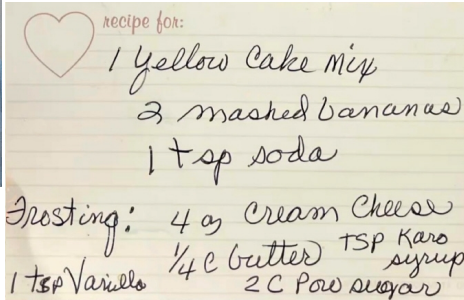 recipe for:
1 yellow cake mix
2 mashed bananas
1 tsp soda
Frosting: 4 oz Cream Cheese
1/4 C butter TSP Karo syrup
1 tsp Vanilla 2 C Pow sugar